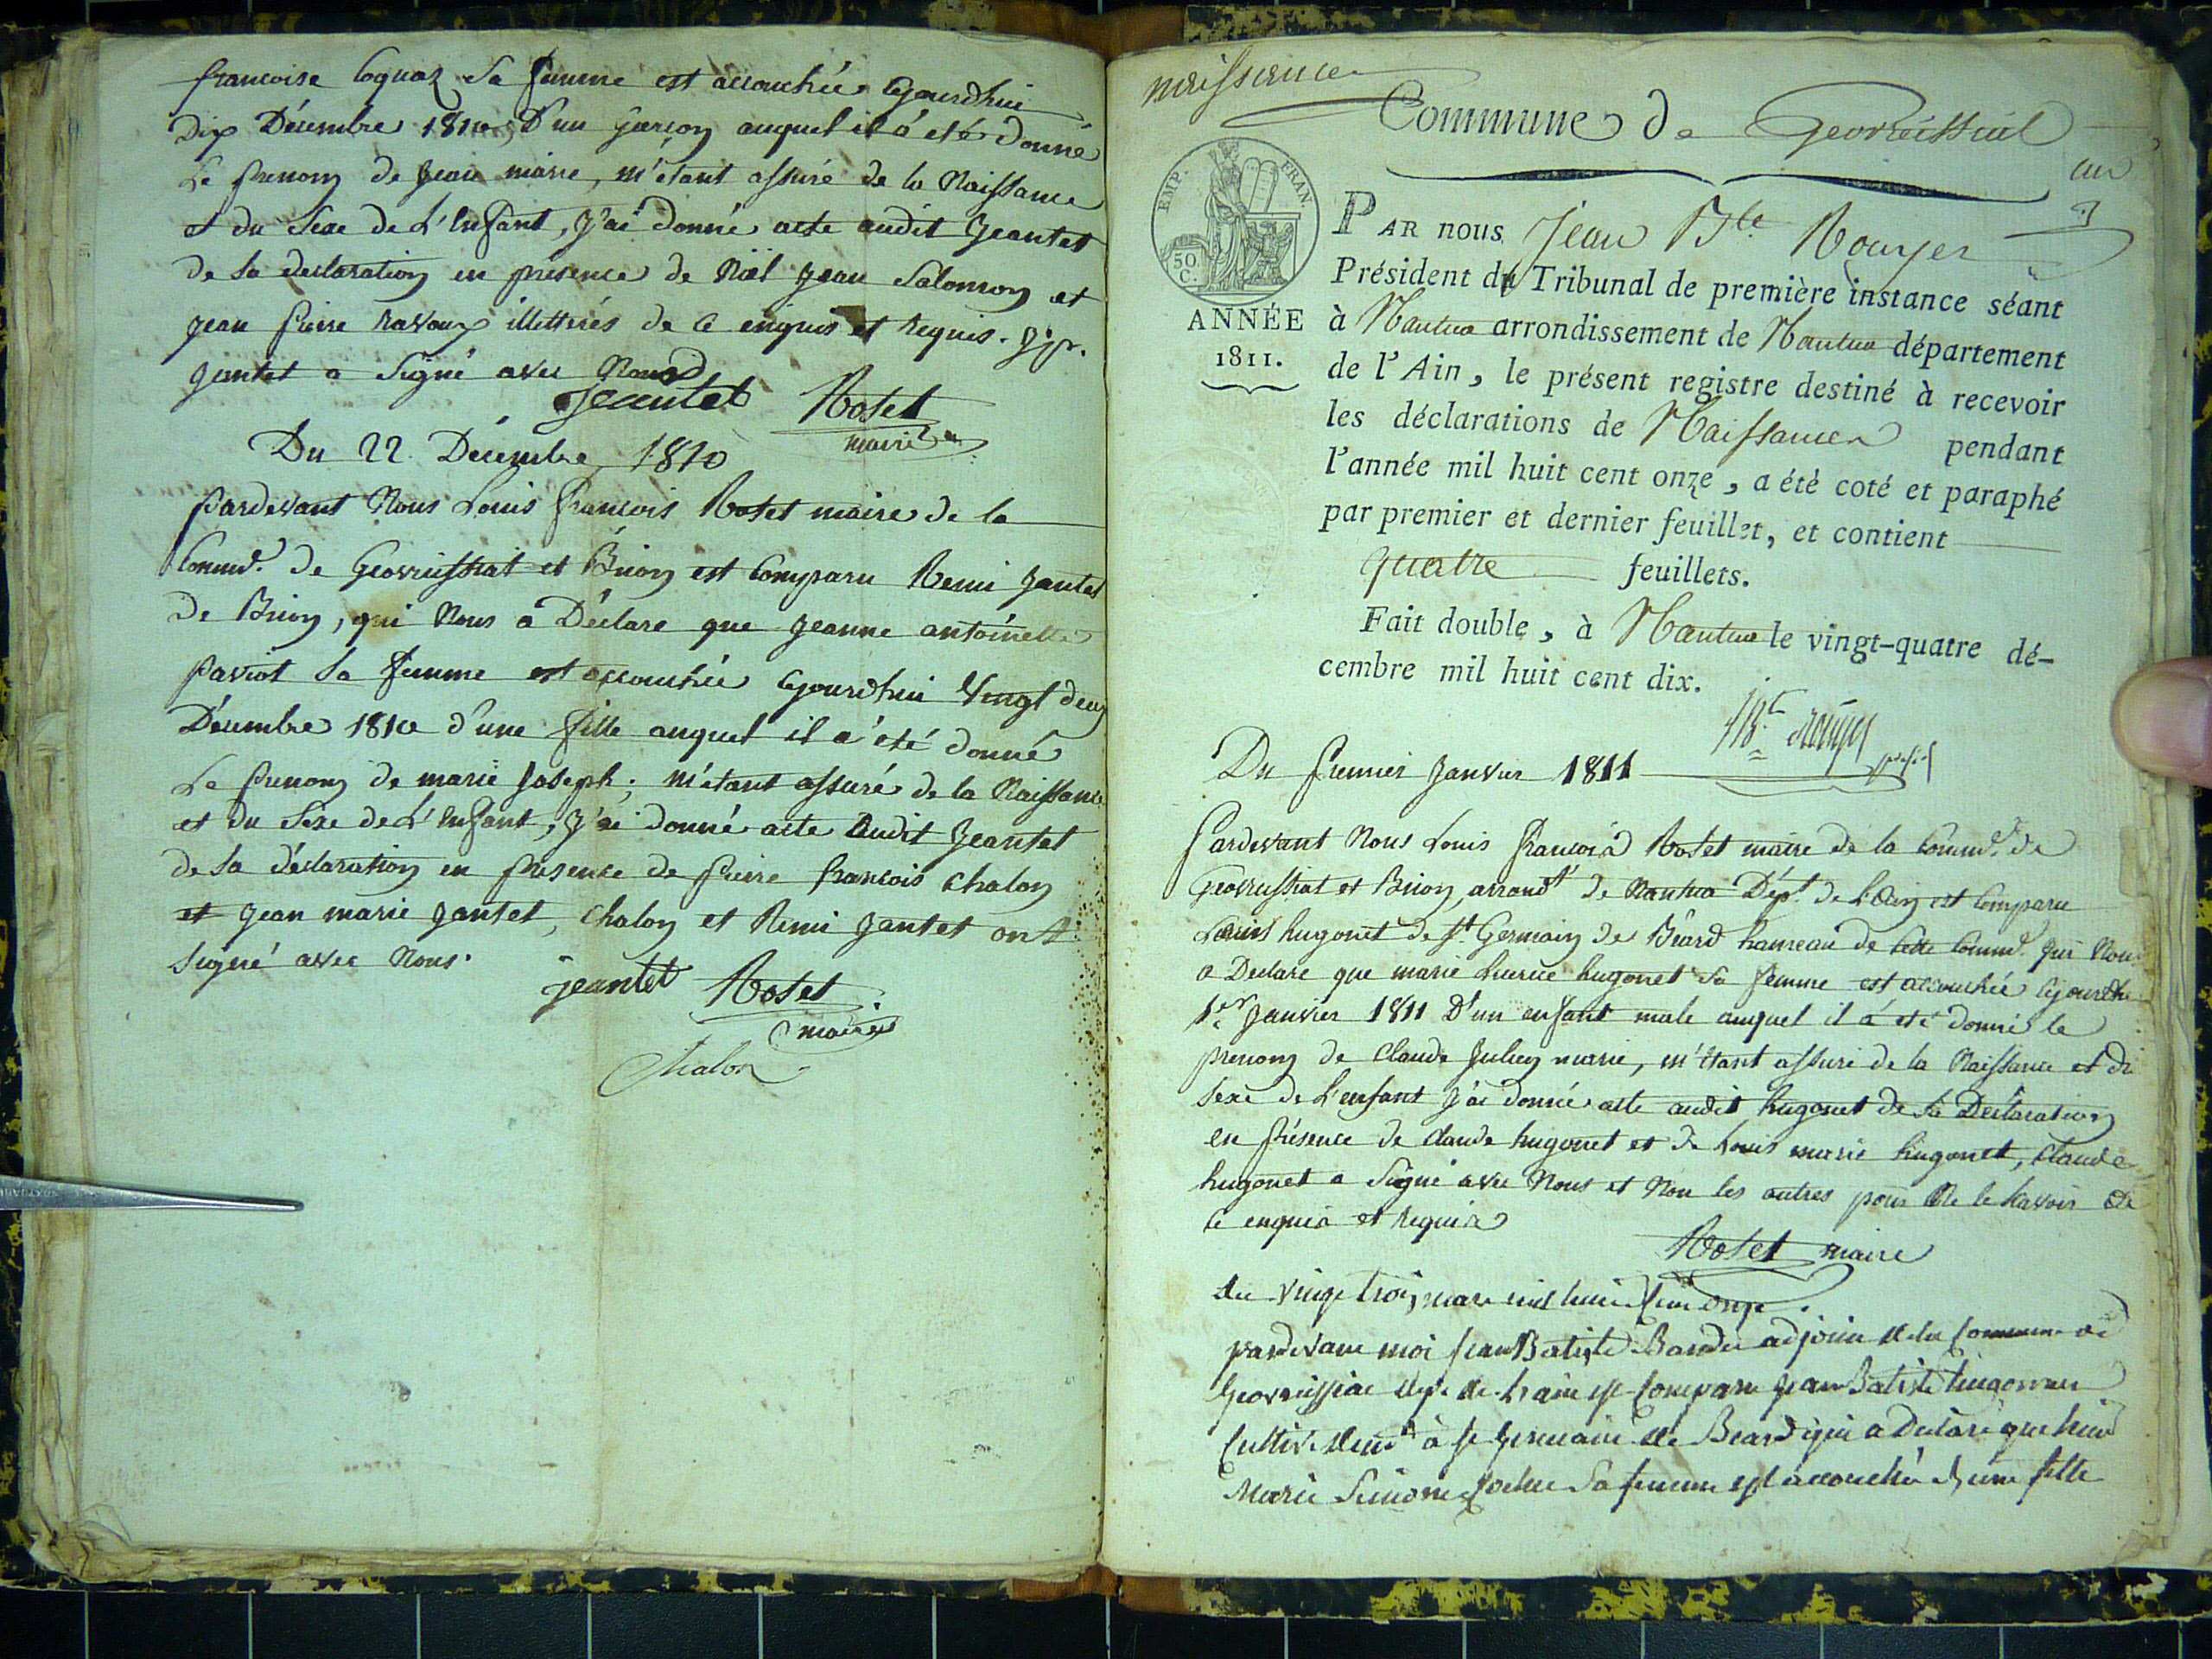 francoise Coquaz Sa femme est accouchée Cejourdhui
Dix Décembre 1810, D'un garçon auquel il a eté Donné
Le prenom de Jean marie, m'etant assuré de la Naissance
et du Sexe de L'enfant, J'ai Donné acte audit Jeantet
de sa declaration en présence de Noël Jean Salomon et
Jean pierre Ravoux illettérés de ce enquis et requis. J: pr.
Jantet a Signé avec Nous
Jeantet Rosset
maire
Du 22 Décembre 1810
Pardevant Nous Louis François Rosset maire de la
Commune. de Geovreissiat et Brion est Comparu Remi Jantet
de Brion, qui Nous a Déclare que Jeanne antoinette
paviot Sa femme est accouchée Cejourdhui Vingt deux
Décembre 1810 d'une fille auquel il a été donné
Le prenom de marie Joseph; m'étant assuré de la Naissance
et du Sexe de L'enfant, J'ai donné acte audit Jeantet
de Sa déclaration en présence de pierre francois Chalon
et Jean marie Jantet, Chalon et Remi Jantet ont
Signé avec Nous.
jeantet Rosset
maire
Chalon
naissance
Commune de Geovreissiat
un
1
EMP. FRAN.
50 C.
ANNÉE
1811.
PAR nous Jean Bte Rouyer
Président du Tribunal de première instance séant
à Nantua arrondissement de Nantua département
de l'Ain, le présent registre destiné à recevoir
les déclarations de Naissances pendant
l'année mil huit cent onze, a été coté et paraphé
par premier et dernier feuillet, et contient
quatre feuillets.
Fait double, à Nantua le vingt-quatre dé-
cembre mil huit cent dix.
JBte Rouyer
Du premier Janvier 1811
Pardevant Nous Louis François Rosset maire de la Comm.e de
Geovreissiat et Brion, arrondt de Nantua Dépt. de L'Ain est Comparu
Louis hugonet de St Germain de Béard hameau de cette Comm.e qui Nous
a Declare que marie hugonet Sa femme est accouchée Cejourdhui
1er Janvier 1811 D'un enfant male auquel il a eté donné le
prenom de Claude Julien marie, m'étant assuré de la Naissance et du
Sexe de L'enfant J'ai donné acte audit hugonet de Sa Déclaration
en présence de Claude hugonet et de Louis marie hugonet, Claude
hugonet a Signé avec Nous et Non les autres pour Ne le Savoir de
ce enquis et requis
Rosset maire
du vingt trois mars mil huit cent onze.
pardevant moi Jean Batiste adjoint de la Commune de
Geovreissiat dept. de L'ain est Comparu Jean Batiste hugonnet
Cultiv. demt à St Germain de Beard qui a Declaré que hier
Marie Simone Sa femme est accouchée d'une fille